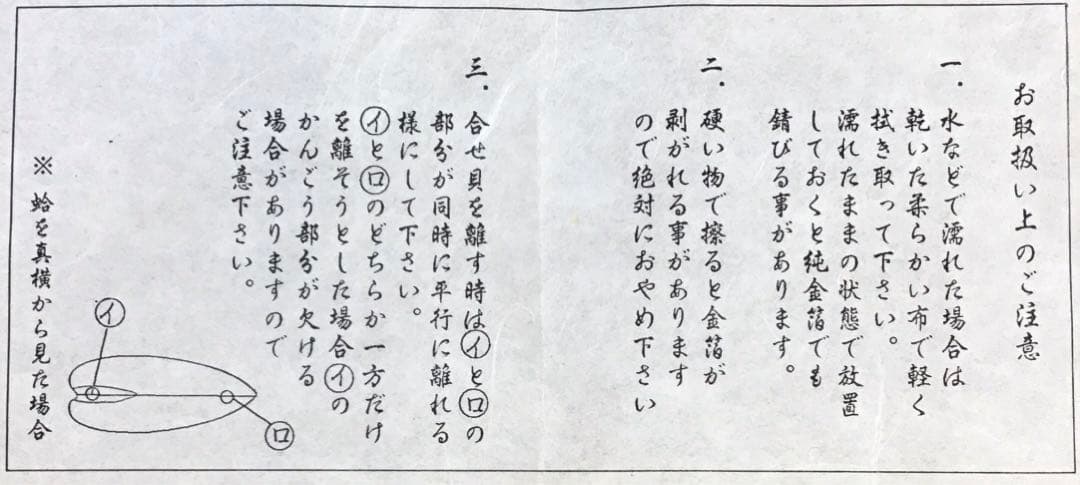 お取扱い上のご注意
一．水などで濡れた場合は
乾いた柔らかい布で軽く
拭き取って下さい。
濡れたままの状態で放置
しておくと純金箔でも
錆びる事があります。
二．硬い物で擦ると金箔が
剥がれる事があります
ので絶対におやめ下さい
三．合せ貝を離す時は㋑と㋺の
部分が同時に平行に離れる
様にして下さい。
㋑と㋺のどちらか一方だけ
を離そうとした場合㋑の
かんごう部分が欠ける
場合がありますので
ご注意下さい。
※ 蛤を真横から見た場合
㋑
㋺